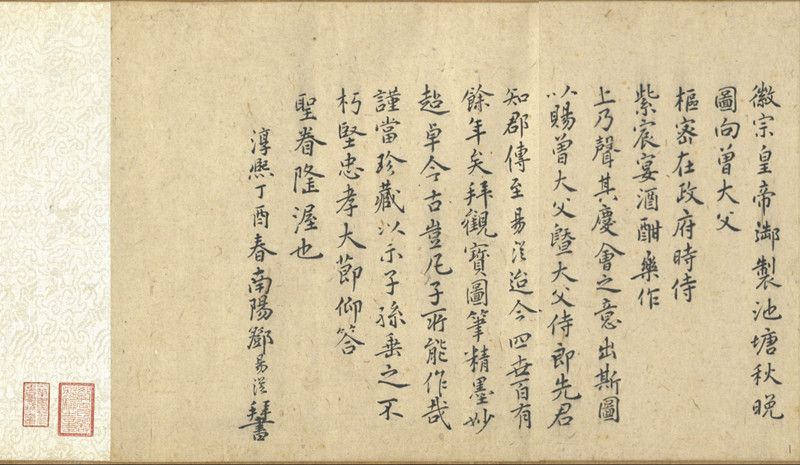 徽宗皇帝御製池塘秋晚
圖向曾大父
樞密在政府時侍
紫宸宴酒酣樂作
上乃聲其慶會之意出斯圖
以賜曾大父暨大父侍郎先君
知郡傳至易從迨今四世百有
餘年矣拜觀寶圖筆精墨妙
超卓今古豈凡子所能作哉
謹當珍藏以示子孫垂之不
朽堅忠孝大節仰答
聖眷隆渥也
淳熙丁酉春南陽鄧易從拜書